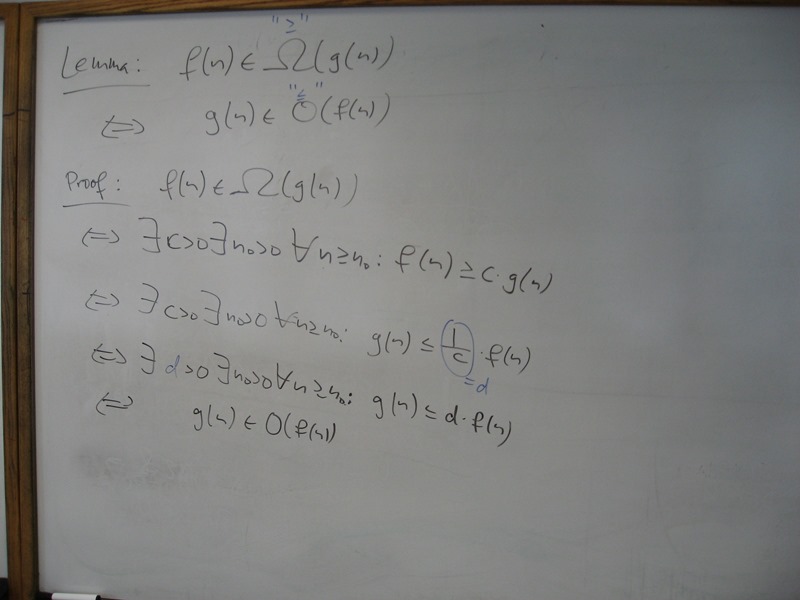 "≥"
Lemma: f(n) ∈ Ω(g(n))
"≤"
⇔ g(n) ∈ O(f(n))
Proof: f(n) ∈ Ω(g(n))
⇔ ∃ c>0 ∃ n₀>0 ∀ n≥n₀: f(n) ≥ c·g(n)
⇔ ∃ c>0 ∃ n₀>0 ∀ n≥n₀: g(n) ≤ 1/c · f(n)
=d
⇔ ∃ d>0 ∃ n₀>0 ∀ n≥n₀: g(n) ≤ d·f(n)
⇔ g(n) ∈ O(f(n))